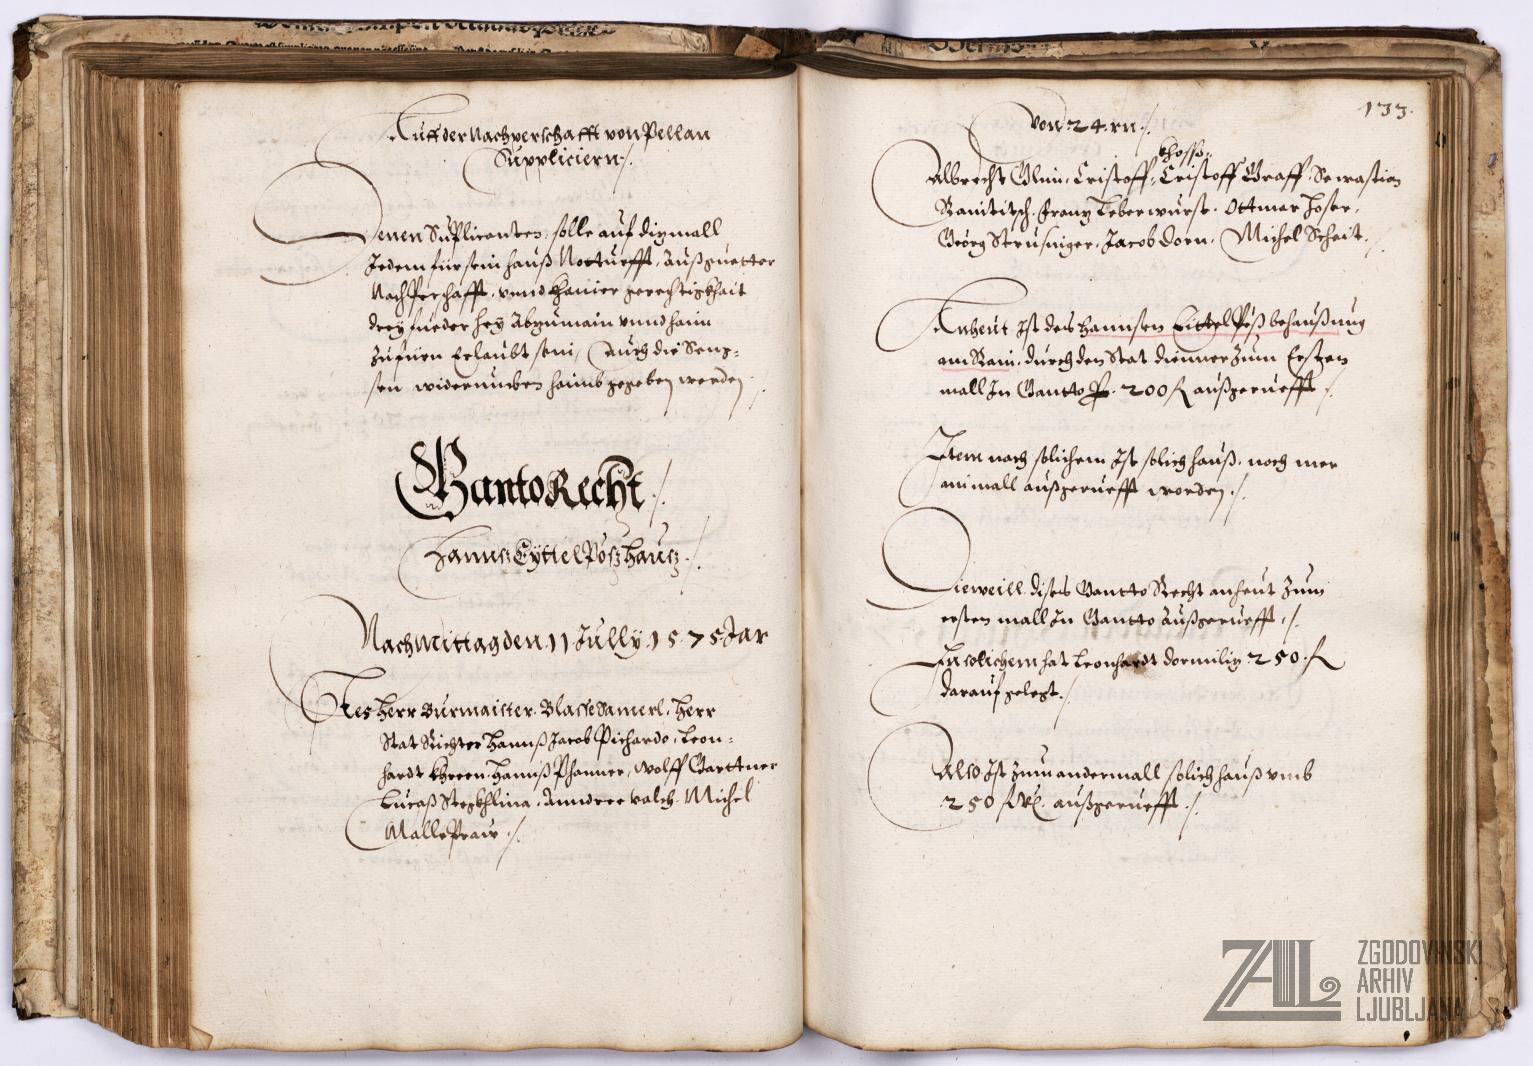 Auff der Nachperschafft von Pellan
Suppliciern /.
Denen Suplicanten, solle auf dizmall
Jedem für sein hauß Notturfft, Außguetter
Nachperschafft, vnnd khainer gerechtigkhait
drey fueder hey Abzumain vnnd haim
zufüern Erlaubt sein, Auch die Seng=
sen widerumben haimb gegeben werden /.
GantoRecht /.
Hannsz Eyttel Posz hausz /.
Nachmittag den 11 Jully 1575 Jar
Res Herr Burmaister Blasse Samerl, Herr
Stat Richter Hannß Jacob Pichardo, Leon=
hardt Khreen, Hannß Phanner, Wolff Garttner
Lucaß Stegkhlina, Anndree Valch Michel
Mallepraur /.
133.
Von 24.rn /.
Khosso.
Albrecht Glini, Cristoff, Cristoff Graff, Sewastian
Ranititsch, Franz Leberwurst, Ottmar Hoser,
Geörg Strusniger, Jacob Dorn, Michel Scheit /.
Anheut Ist des Hannsen Eittel Poß behaußung
am Rain, durch den Stat dienner zum Ersten
mall In Gantto Pr. 200 fl außgerüefft /.
Item nach solichem Ist solich hauß, noch mer
ainmall außgerüefft worden /.
Dieweill dises Gantto Recht anheut zum
ersten mall In Gantto Außgerüefft /.
In solichem hat Leonhardt Dormiliz 250 fl
darauf gelegt /.
Also Ist zum andermall solich hauß vmb
250 fl R. außgerüefft /.
ZAL
ZGODOVINSKI
ARHIV
LJUBLJANA